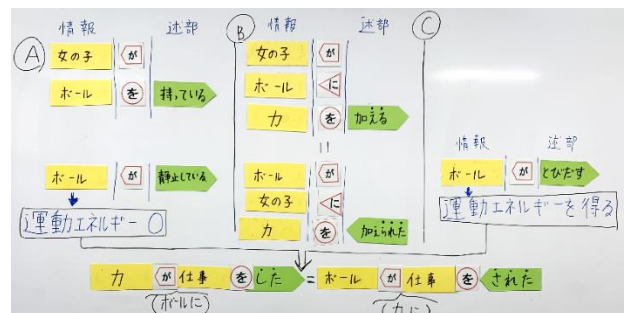 Ⓐ 情報 述部
女の子 が
ボール を 持っている
ボール が 静止している
運動エネルギー 0
Ⓑ 情報 述部
女の子 が
ボール に
力 を 加える
=
ボール が
女の子 に
力 を 加えられた
Ⓒ
情報 述部
ボール が とびだす
運動エネルギーを得る
力 が 仕事 を した = ボール が 仕事 を された
(ボールに) (力に)